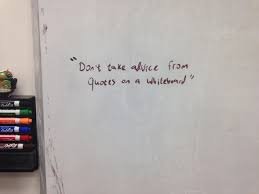 "Don't take advice from
quotes on a whiteboard"